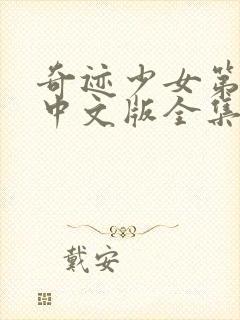 奇迹少女第
中文版全集
戴安